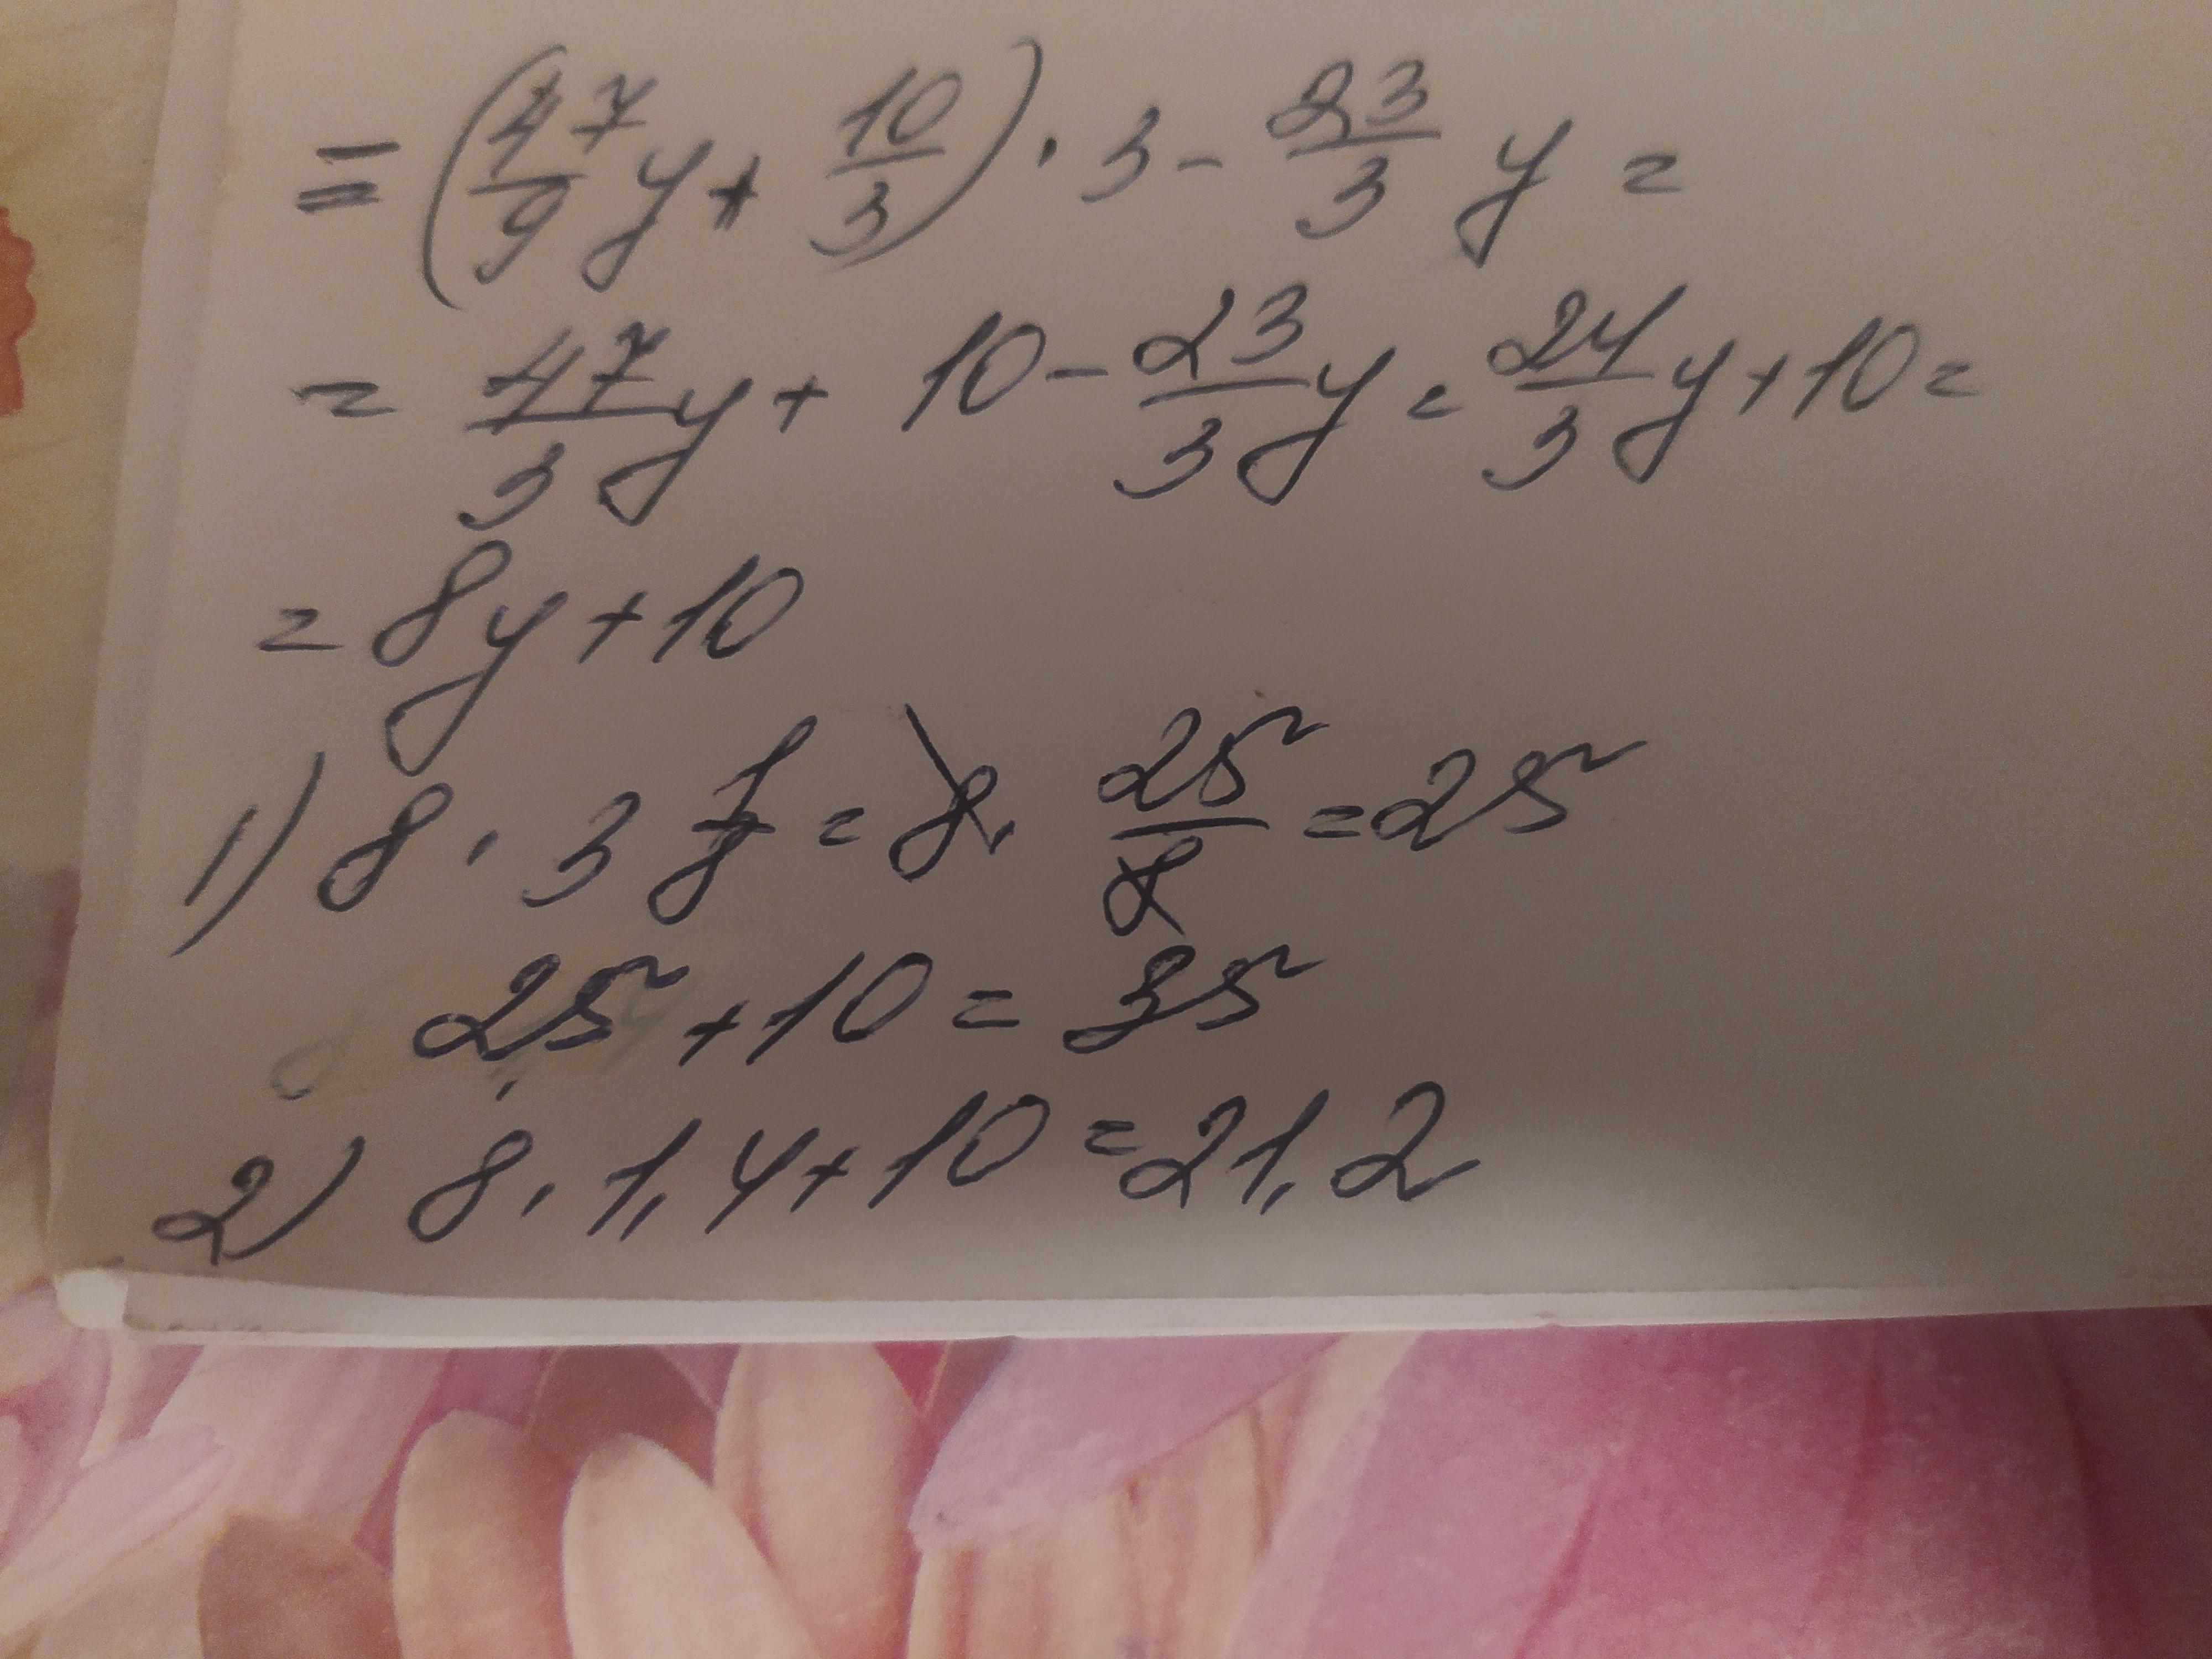 = (47/9 y + 10/3) · 3 - 23/3 y =
= 47/3 y + 10 - 23/3 y = 24/3 y + 10 =
= 8y + 10
1) 8 · 3 1/8 = 8 · 25/8 = 25
25 + 10 = 35
2) 8 · 1,4 + 10 = 21,2